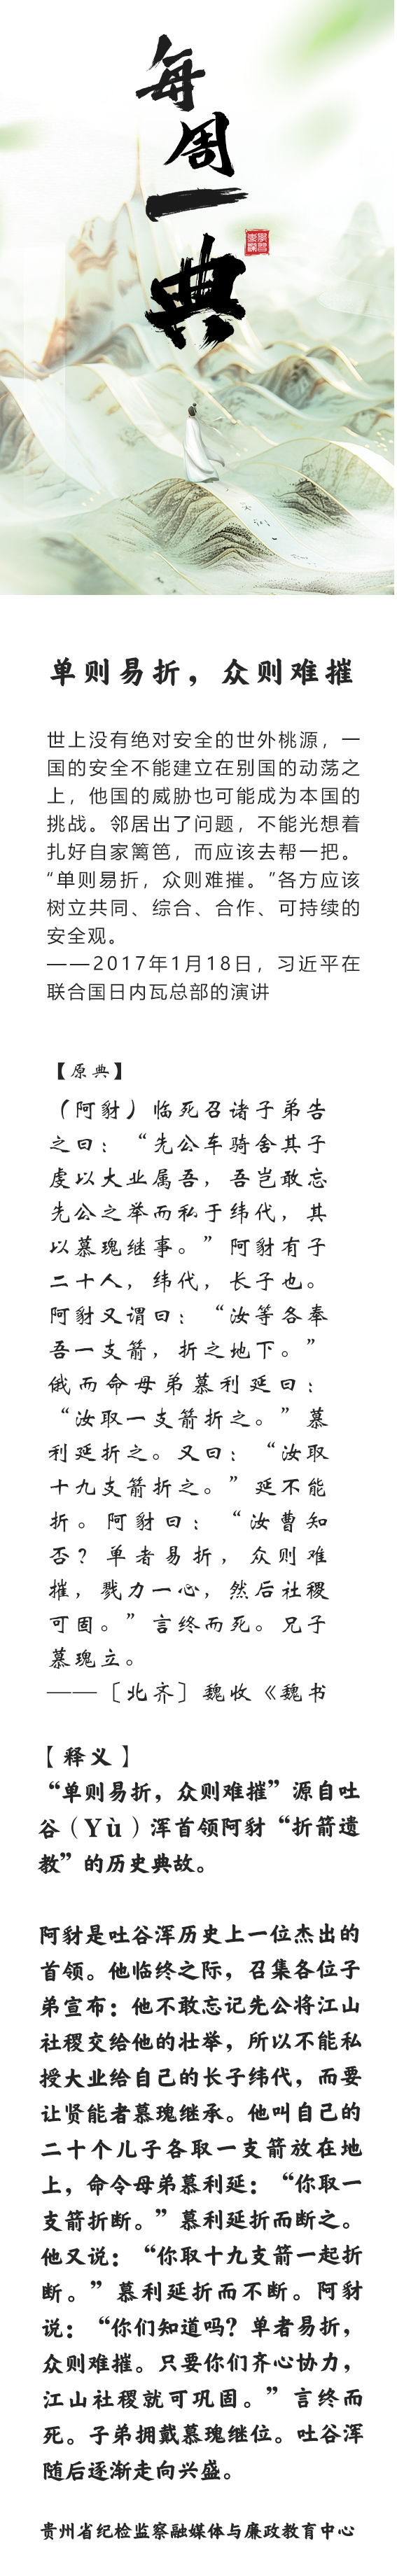 每
周
一
典
单则易折，众则难摧
世上没有绝对安全的世外桃源，一
国的安全不能建立在别国的动荡之
上，他国的威胁也可能成为本国的
挑战。邻居出了问题，不能光想着
扎好自家篱笆，而应该去帮一把。
“单则易折，众则难摧。”各方应该
树立共同、综合、合作、可持续的
安全观。
——2017年1月18日，习近平在
联合国日内瓦总部的演讲
【原典】
（阿豺）临死召诸子弟告
之曰：“先公车骑舍其子
虔以大业属吾，吾岂敢忘
先公之举而私于纬代，其
以慕璝继事。”阿豺有子
二十人，纬代，长子也。
阿豺又谓曰：“汝等各奉
吾一支箭，折之地下。”
俄而命母弟慕利延曰：
“汝取一支箭折之。”慕
利延折之。又曰：“汝取
十九支箭折之。”延不能
折。阿豺曰：“汝曹知
否？单者易折，众则难
摧，戮力一心，然后社稷
可固。”言终而死。兄子
慕璝立。
——［北齐］魏收《魏书
【释义】
“单则易折，众则难摧”源自吐
谷（Yù）浑首领阿豺“折箭遗
教”的历史典故。
阿豺是吐谷浑历史上一位杰出的
首领。他临终之际，召集各位子
弟宣布：他不敢忘记先公将江山
社稷交给他的壮举，所以不能私
授大业给自己的长子纬代，而要
让贤能者慕璝继承。他叫自己的
二十个儿子各取一支箭放在地
上，命令母弟慕利延：“你取一
支箭折断。”慕利延折而断之。
他又说：“你取十九支箭一起折
断。”慕利延折而不断。阿豺
说：“你们知道吗？单者易折，
众则难摧。只要你们齐心协力，
江山社稷就可巩固。”言终而
死。子弟拥戴慕璝继位。吐谷浑
随后逐渐走向兴盛。
贵州省纪检监察融媒体与廉政教育中心